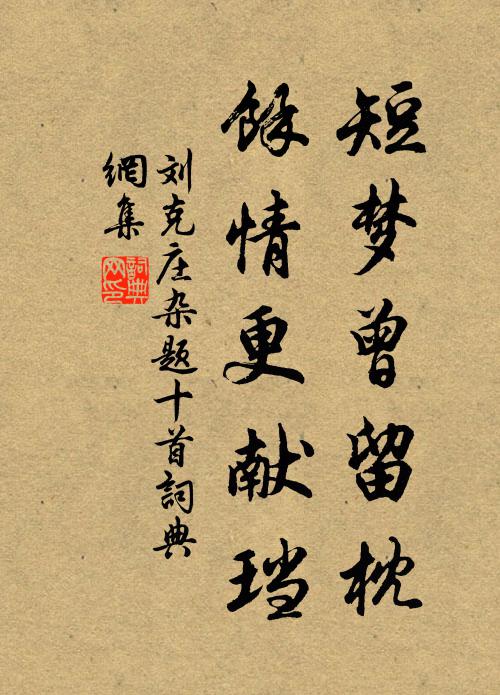 短梦曾留枕
餘情更献珰
刘克庄杂题十首詞典
網集
詞典
网印